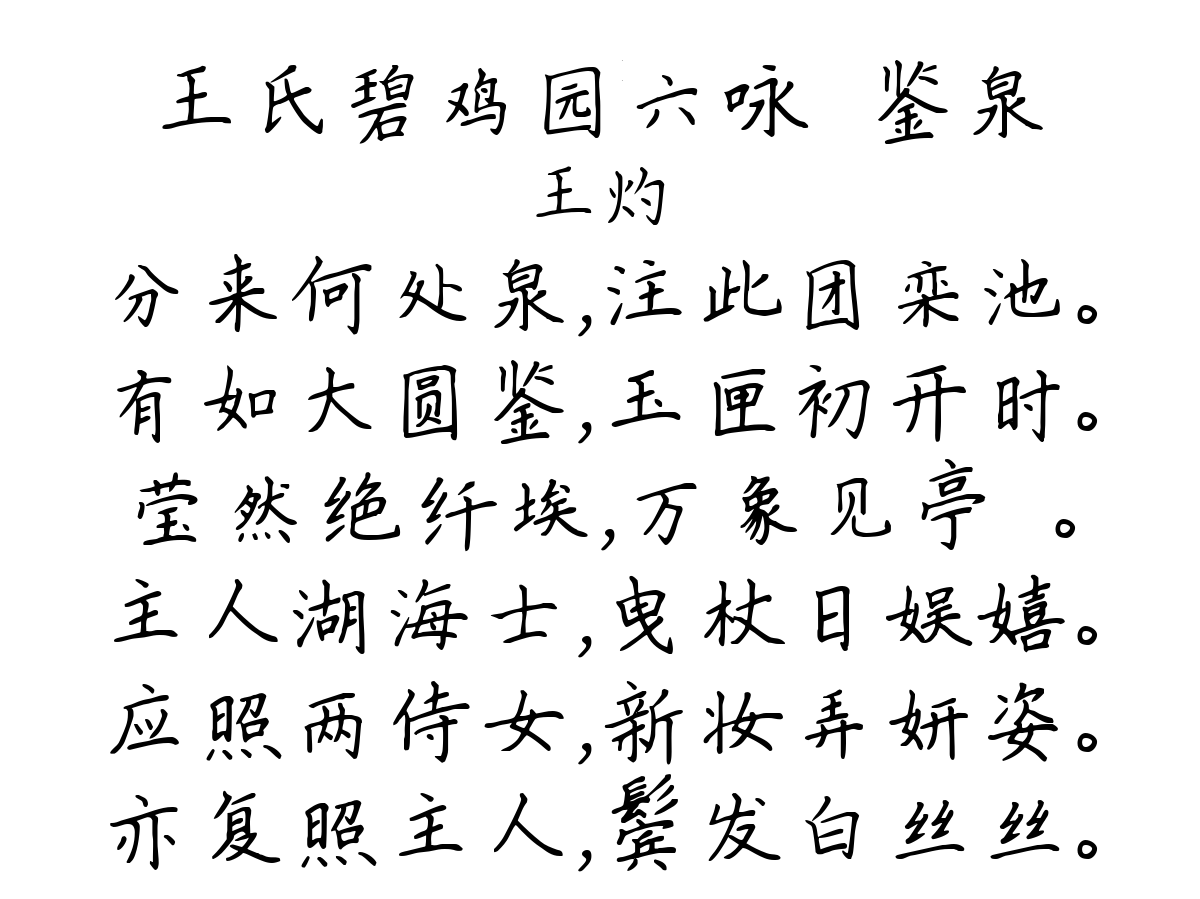 王氏碧鸡园六咏 鉴泉
王灼
分来何处泉,注此团栾池。
有如大圆鉴,玉匣初开时。
莹然绝纤埃,万象见亭 。
主人湖海士,曳杖日娱嬉。
应照两侍女,新妆弄妍姿。
亦复照主人,鬓发白丝丝。